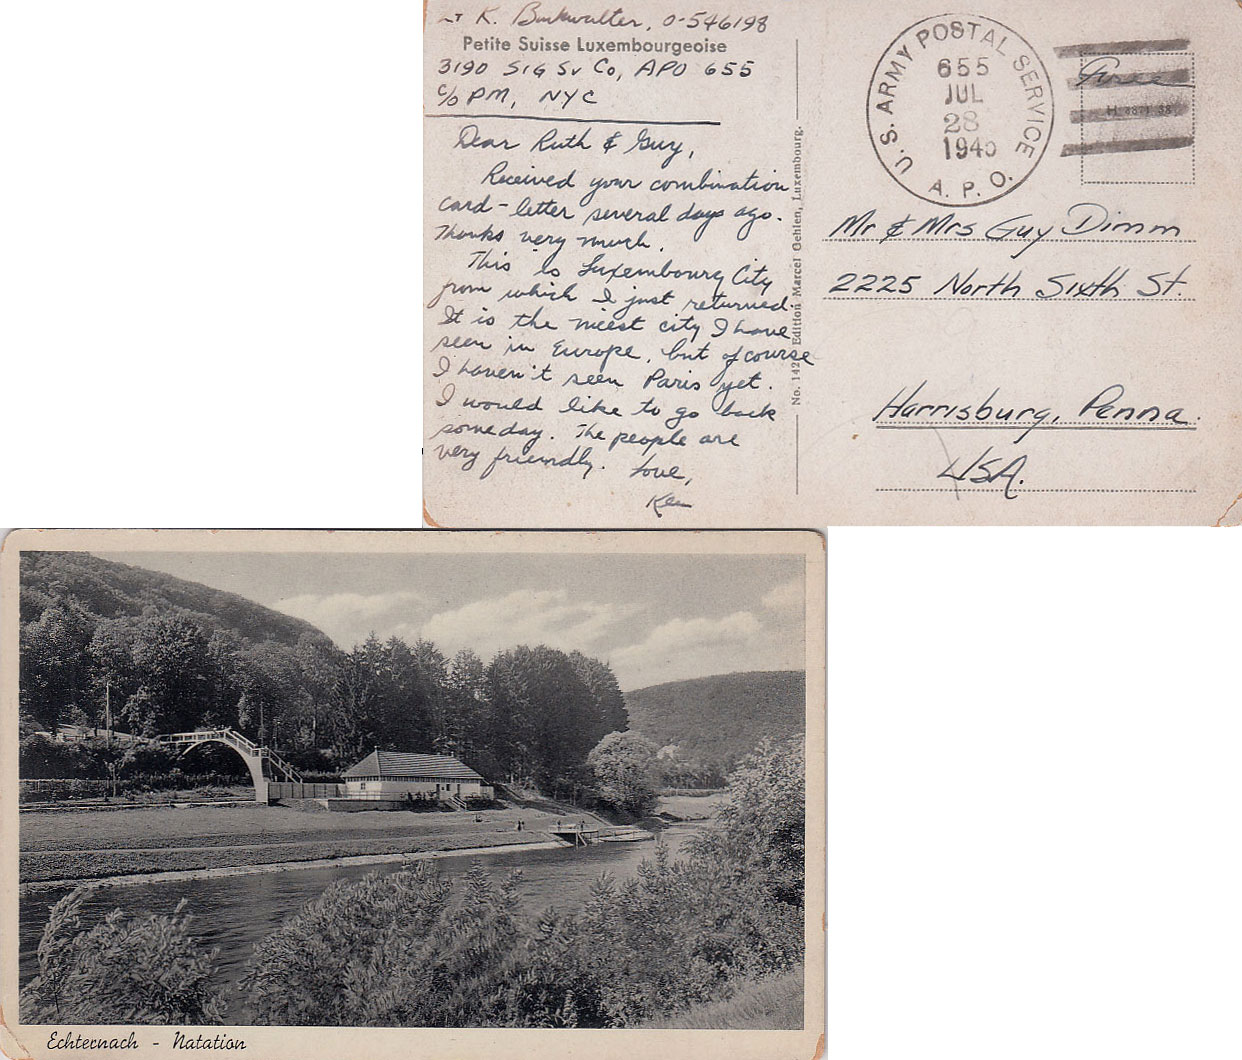 Lt K. Bukwalter, O-546198
Petite Suisse Luxembourgeoise
3190 SIG SV Co, APO 655
c/o PM, NYC
Dear Ruth & Guy,
Received your combination
card-letter several days ago.
Thanks very much.
This is Luxembourg City
from which I just returned.
It is the nicest city I have
seen in Europe, but of course
I haven't seen Paris yet.
I would like to go back
someday. The people are
very friendly. Love,
Ken
No. 142 Edition Marcel Gehlen, Luxembourg.
U.S. ARMY POSTAL SERVICE
655
JUL
28
1945
A.P.O.
Free
Mr & Mrs Guy Dimm
2225 North Sixth St.
Harrisburg, Penna.
USA.
Echternach - Natation